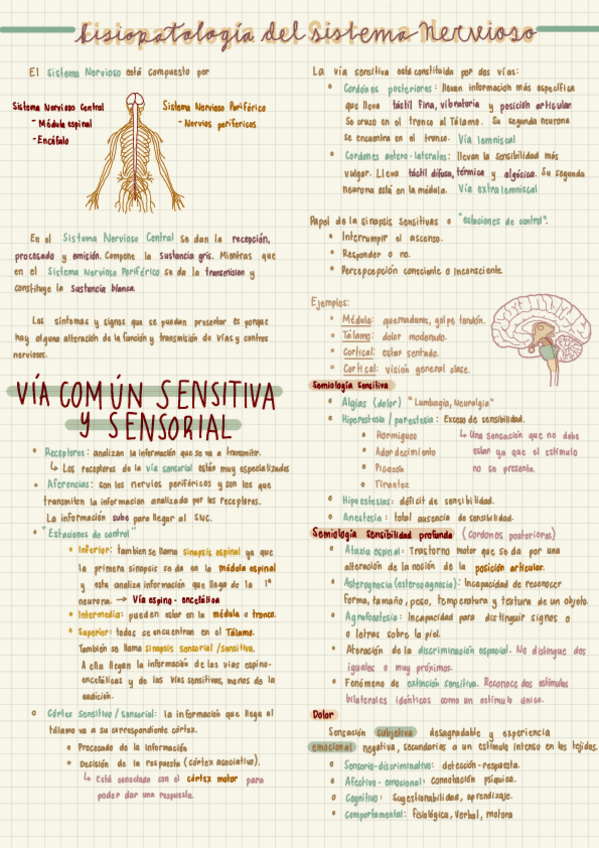 Fisiopatología del Sistema Nervioso
El Sistema Nervioso está compuesto por
Sistema Nervioso Central
- Médula espinal
- Encéfalo
Sistema Nervioso Periférico
- Nervios periféricos
En el Sistema Nervioso Central se dan la recepción,
procesado y emisión. Compone la sustancia gris. Mientras que
en el Sistema Nervioso Periférico se da la transmision y
constituye la sustancia blanca.
Los síntomas y signos que se puedan presentar es porque
hay alguna alteración de la función y transmisión de vías y centros
nerviosos.
VÍA COMÚN SENSITIVA
Y SENSORIAL
• Receptores: analizan la información que se va a transmitir.
↳ Los receptores de la vía sensorial están muy especializados
• Aferencias: son los nervios periféricos y son los que
transmiten la informacion analizada por los receptores.
La información sube para llegar al SNC.
• "Estaciones de control"
• Inferior: tambien se llama sinapsis espinal ya que
la primera sinapsis se da en la médula espinal
y esta analiza información que llega de la 1ª
neurona. → Vía espino-encefálica
• Intermedia: pueden estar en la médula o tronco.
• Superior: todos se encuentran en el Tálamo.
También se llama sinapsis sensorial /sensitiva.
A ella llegan la información de las vías espino-
encefálicas y de las vías sensitivas, menos de la
audición.
• Córtex sensitivo / sensorial: la información que llega al
tálamo va a su correspondiente córtex.
• Procesado de la información
• Decisión de la respuesta (córtex asociativo).
↳ Está conectado con el córtex motor para
poder dar una respuesta.
La vía sensitiva está constituida por dos vías:
• Cordones posteriores: llevan informacion más específica
que lleva táctil fina, vibratoria y posición articular.
Se cruza en el tronco al Tálamo. Su segunda neurona
se encuentra en el tronco. Vía lemniscal
• Cordones antero-laterales: llevan la sensibilidad más
vulgar. Lleva táctil difusa, térmica y algésica. Su segunda
neurona está en la médula. Vía extralemniscal
Papel de la sinapsis sensitivas o "estaciones de control":
• Interrumpir el ascenso.
• Responder o no.
• Percepcepción consciente o inconsciente.
Ejemplos:
• Médula: quemaduras, golpe tendón.
• Tálamo: dolor moderado.
• Cortical: estar sentado.
• Cortical: visión general clase.
Semiología Sensitiva
• Algias (dolor) "Lumbagia, Neuralgia"
• Hiperestesia / parestesia: Exceso de sensibilidad.
• Hormigueo
• Adordecimiento
• Picazón
• Tirantez
↳ Una sensación que no debe
estar ya que el estímulo
no se presenta.
• Hipoestesias: déficit de sensibilidad.
• Anestesia: total ausencia de sensibilidad.
Semiología sensibilidad profunda (cordones posteriores)
• Ataxia espinal: Trastorno motor que se da por una
alteración de la noción de la posición articular.
• Asterognosia (estereoagnosia): Incapacidad de reconocer
forma, tamaño, peso, temperatura y textura de un objeto.
• Agrafoestesia: Incapacidad para distinguir signos o
o letras sobre la piel.
• Alteración de la discriminación espacial. No distingue dos
iguales o muy próximos.
• Fenómeno de extinción sensitiva. Reconoce dos estímulos
bilaterales idénticos como un estímulo único.
Dolor
Sensación subjetiva desagradable y experiencia
emocional negativa, secundarias a un estímulo intenso en los tejidos.
• Sensorio-discriminativo: detección-respuesta.
• Afectivo-emocional: connotación psíquica.
• Cognitivo: Sugestionabilidad, aprendizaje.
• Comportamental: fisiológica, verbal, motora